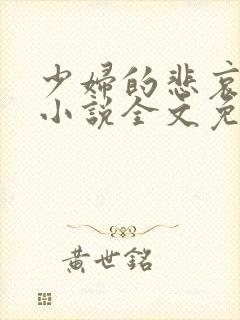 少婦的悲哀
小說全文免
黃世銘